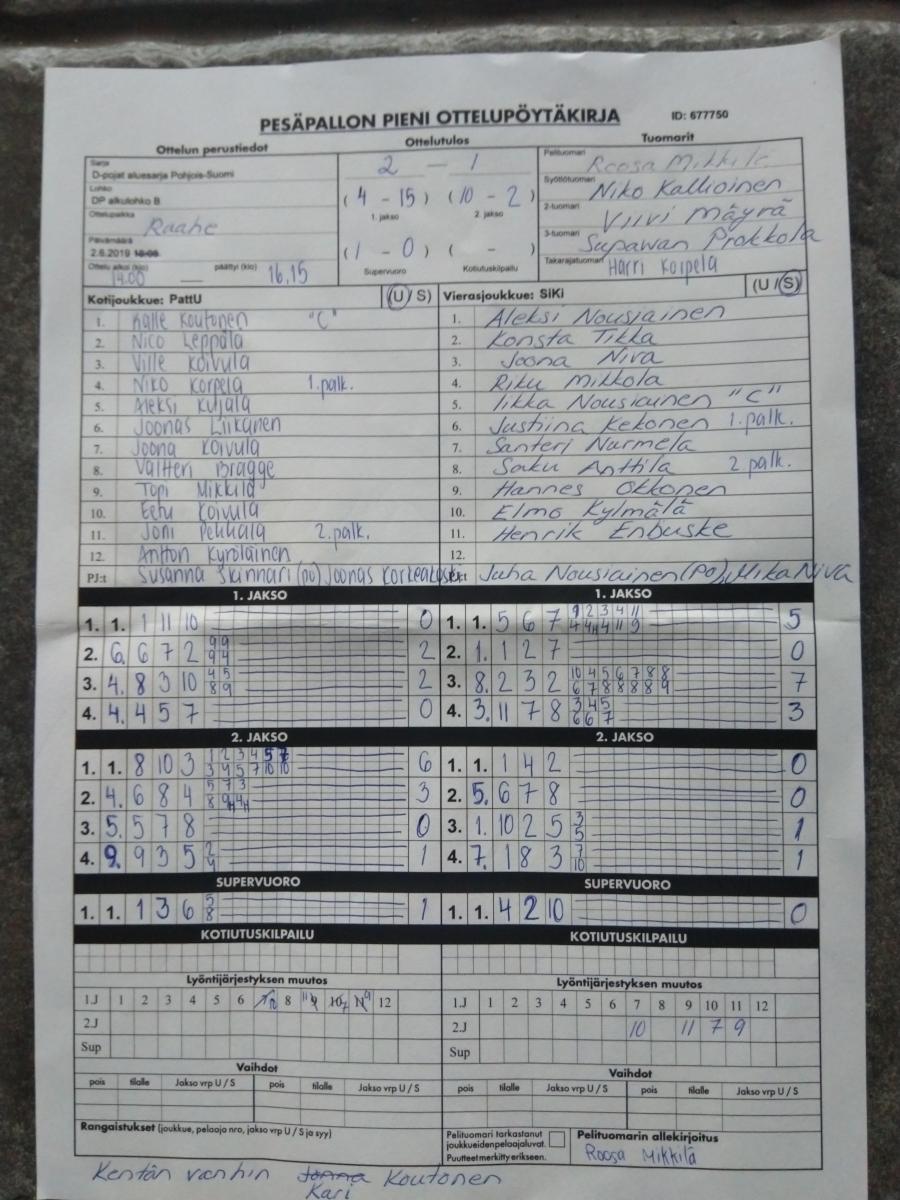 PESÄPALLON PIENI OTTELUPÖYTÄKIRJA ID: 677750
Ottelun perustiedot Ottelutulos Tuomarit
Sarja
D-pojat aluesarja Pohjois-Suomi
Lohko
DP alkulohko B
Ottelupaikka
Raahe
Päivämäärä
2.6.2019 18:00
Ottelu alkoi (klo) päättyi (klo)
14.00 — 16.15
2 — 1
( 4 - 15 ) ( 10 - 2 )
1. jakso 2. jakso
( 1 - 0 ) ( - )
Supervuoro Kotiutuskilpailu
Pelituomari Roosa Mikkilä
Syöttötuomari Niko Kallioinen
2-tuomari Viivi Mäyrä
3-tuomari Supawan Prokkola
Takarajatuomari Harri Korpela
Kotijoukkue: PattU (U / S)
1. Kalle Koutonen "C"
2. Nico Leppälä
3. Ville Koivula
4. Niko Korpela 1.palk.
5. Aleksi Kujala
6. Joonas Liikanen
7. Joona Koivula
8. Valtteri Bragge
9. Topi Mikkilä
10. Eetu Koivula
11. Joni Pehkala 2.palk.
12. Anton Kyröläinen
PJ:t Susanna Skinnari (po) Joonas Korkeakoski
Vierasjoukkue: SiKi (U / S)
1. Aleksi Nousiainen
2. Konsta Tikka
3. Joona Niva
4. Riku Mikkola
5. Iikka Nousiainen "C"
6. Justiina Kekonen 1.palk.
7. Santeri Nurmela
8. Saku Anttila 2.palk.
9. Hannes Okkonen
10. Elmo Kylmälä
11. Henrik Enbuske
12.
PJ:t Juha Nousiainen (Po), Mika Niva
1. JAKSO 1. JAKSO
1. 1. 1 11 10 0
2. 6. 6 7 2 9 9 9 4 2
3. 4. 8 3 10 4 5 8 9 2
4. 4. 4 5 7 0
1. 1. 5 6 7 1 2 3 4 11 4 4H 4 11 9 5
2. 1. 1 2 7 0
3. 8. 2 3 2 10 4 5 6 7 8 8 6 7 8 8 8 8 9 7
4. 3. 11 7 8 3 4 5 6 6 7 3
2. JAKSO 2. JAKSO
1. 1. 8 10 3 1 2 3 4 5 7 3 4 5 7 10 10 6
2. 4. 6 8 4 5 7 3 8 9H 4H 3
3. 5. 5 7 8 0
4. 9. 9 3 5 2 4 1
1. 1. 1 4 2 0
2. 5. 6 7 8 0
3. 1. 10 2 5 3 5 1
4. 7. 1 8 3 7 10 1
SUPERVUORO SUPERVUORO
1. 1. 1 3 6 5 8 1
1. 1. 4 2 10 0
KOTIUTUSKILPAILU KOTIUTUSKILPAILU
Lyöntijärjestyksen muutos Lyöntijärjestyksen muutos
1.J 1 2 3 4 5 6 7 10 8 9 11 10 7 11 9 12
2.J
Sup
1.J 1 2 3 4 5 6 7 8 9 10 11 12
2.J 10 11 7 9
Sup
Vaihdot Vaihdot
pois tilalle Jakso vrp U / S pois tilalle Jakso vrp U / S
pois tilalle Jakso vrp U / S pois tilalle Jakso vrp U / S
Rangaistukset (joukkue, pelaaja nro, jakso vrp U / S ja syy)
Pelituomari tarkastanut
joukkueidenpelaajaluvat.
Puutteet merkitty erikseen.
Pelituomarin allekirjoitus
Roosa Mikkilä
Kentän vanhin Joona Koutonen
Kari